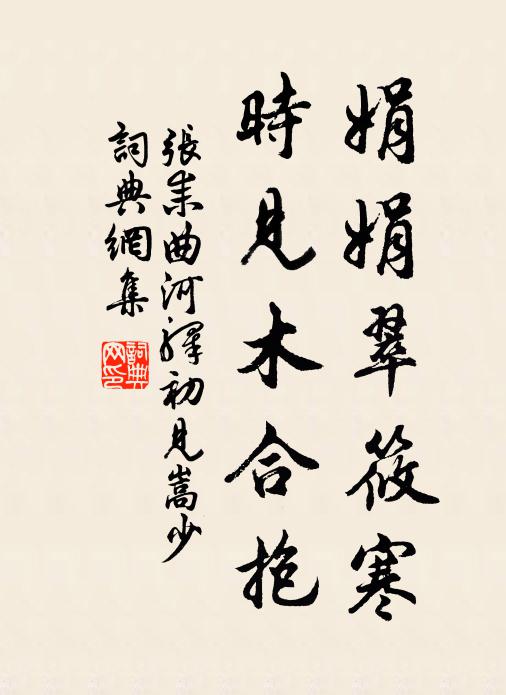 娟娟翠筱寒
時見木合抱
張耒曲河驛初見嵩少
詞典網集
詞典網印